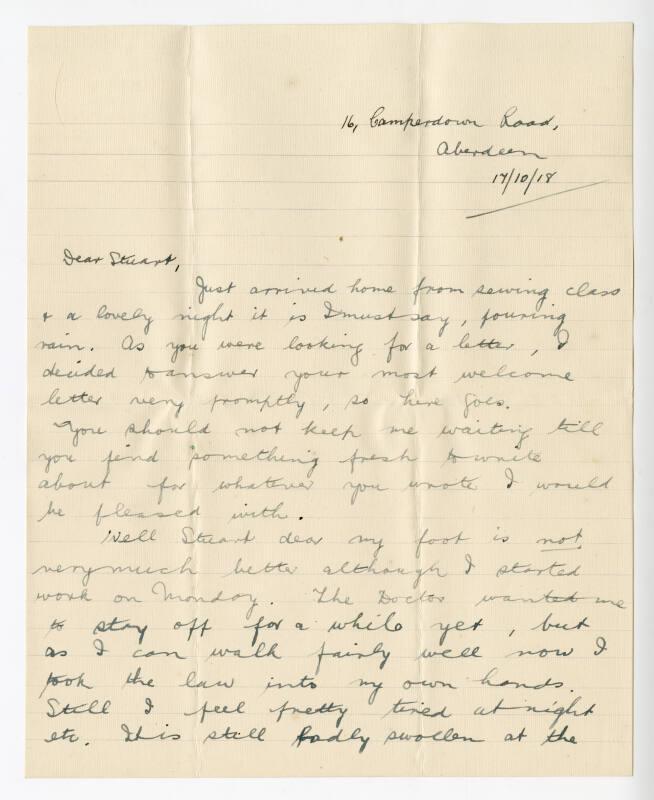 16, Camperdown Road,
Aberdeen
17/10/18
Dear Stuart,
Just arrived home from sewing class
& a lovely night it is I must say, pouring
rain. As you were looking for a letter, I
decided to answer your most welcome
letter very promptly, so here goes.
You should not keep me waiting till
you find something fresh to write
about for whatever you wrote I would
be pleased with.
Well Stuart dear my foot is not
very much better although I started
work on Monday. The Doctor wanted me
to stay off for a while yet, but
as I can walk fairly well now I
took the law into my own hands.
Still I feel pretty tired at night
etc. It is still badly swollen at the